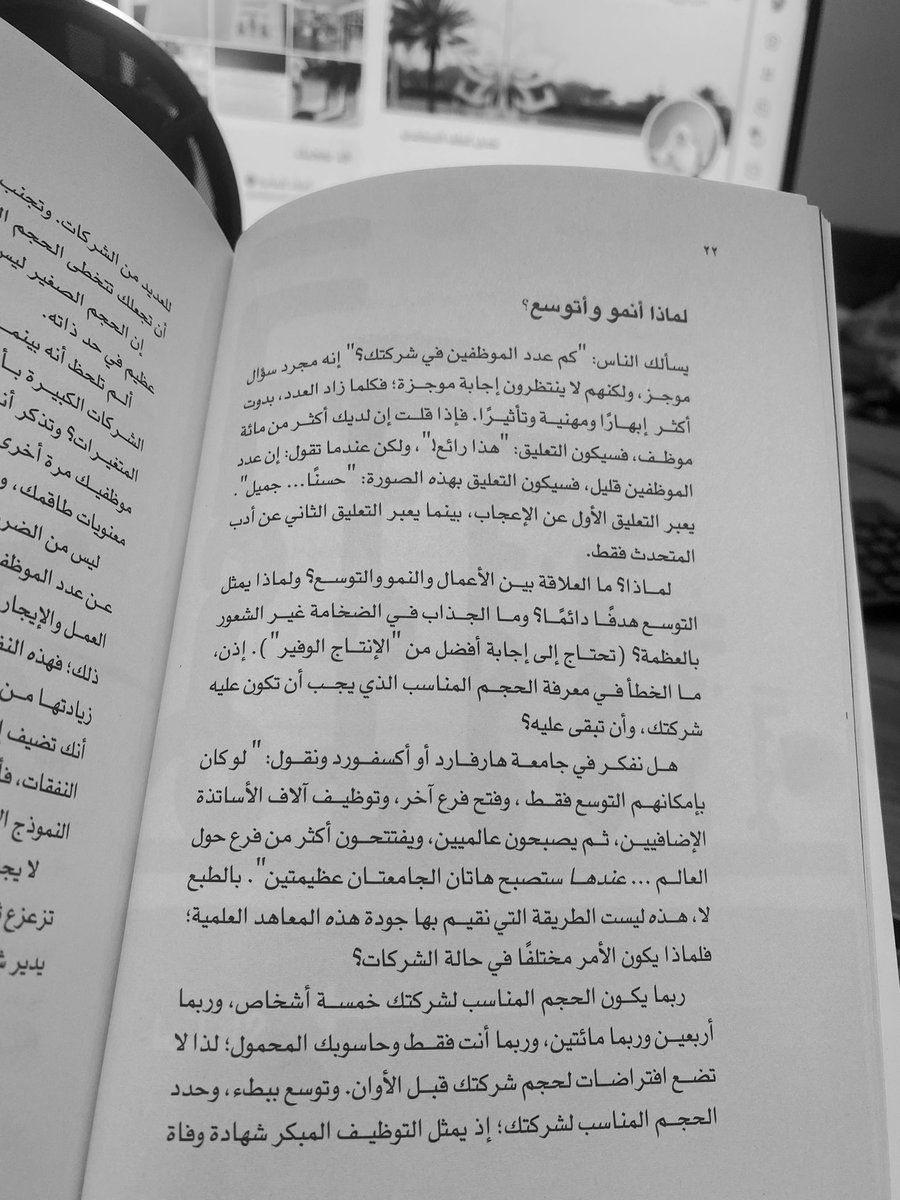 ٢٢
لماذا أنمو وأتوسع؟
يسألك الناس: "كم عدد الموظفين في شركتك؟" إنه مجرد سؤال
موجز، ولكنهم لا ينتظرون إجابة موجزة؛ فكلما زاد العدد، بدوت
أكثر إبهارًا ومهنية وتأثيرًا. فإذا قلت إن لديك أكثر من مائة
موظف، فسيكون التعليق: "هذا رائع!"، ولكن عندما تقول: إن عدد
الموظفين قليل، فسيكون التعليق بهذه الصورة: "حسنًا... جميل".
يعبر التعليق الأول عن الإعجاب، بينما يعبر التعليق الثاني عن أدب
المتحدث فقط.
لماذا؟ ما العلاقة بين الأعمال والنمو والتوسع؟ ولماذا يمثل
التوسع هدفًا دائمًا؟ وما الجذاب في الضخامة غير الشعور
بالعظمة؟ (تحتاج إلى إجابة أفضل من "الإنتاج الوفير"). إذن،
ما الخطأ في معرفة الحجم المناسب الذي يجب أن تكون عليه
شركتك، وأن تبقى عليه؟
هل نفكر في جامعة هارفارد أو أكسفورد ونقول: "لو كان
بإمكانهم التوسع فقط، وفتح فرع آخر، وتوظيف آلاف الأساتذة
الإضافيين، ثم يصبحون عالميين، ويفتتحون أكثر من فرع حول
العالم ... عندها ستصبح هاتان الجامعتان عظيمتين". بالطبع
لا، هذه ليست الطريقة التي نقيم بها جودة هذه المعاهد العلمية؛
فلماذا يكون الأمر مختلفًا في حالة الشركات؟
ربما يكون الحجم المناسب لشركتك خمسة أشخاص، وربما
أربعين وربما مائتين، وربما أنت فقط وحاسوبك المحمول؛ لذا لا
تضع افتراضات لحجم شركتك قبل الأوان. وتوسع ببطء، وحدد
الحجم المناسب لشركتك؛ إذ يمثل التوظيف المبكر شهادة وفاة
للعديد من الشركات. وتجنب
أن تجعلك تتخطى الحجم
إن الحجم الصغير ليس
عظيم في حد ذاته.
ألم تلحظ أنه بينما
الشركات الكبيرة
المتغيرات؟ وتذكر
موظفيك مرة أخرى
معنويات طاقمك،
ليس من
عن عدد
العمل والإيجار
ذلك؛ فهذه
زيادتها من
أنك تضيف
النفقات،
النموذج
لا
يدير